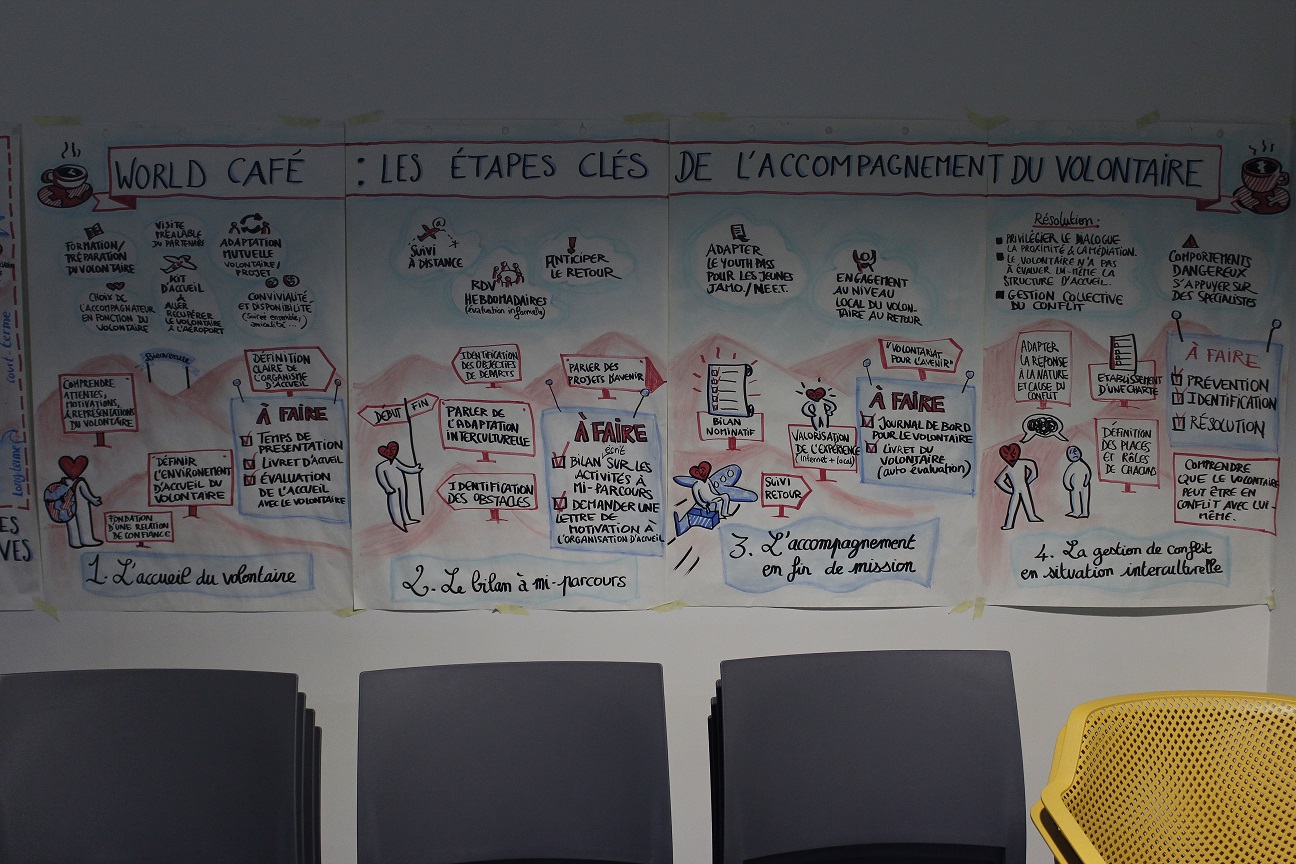 WORLD CAFÉ : LES ÉTAPES CLÉS DE L'ACCOMPAGNEMENT DU VOLONTAIRE
FORMATION/
PRÉPARATION
DU VOLONTAIRE
VISITE
PRÉALABLE
DU PARTENAIRE
ADAPTATION
MUTUELLE
VOLONTAIRE/
PROJET
CHOIX DE
L'ACCOMPAGNATEUR
EN FONCTION DU
VOLONTAIRE
KIT
D'ACCUEIL
À
ALLER
RÉCUPÉRER
LE VOLONTAIRE
À L'AÉROPORT
CONVIVIALITÉ
ET DISPONIBILITÉ
Bienvenue
COMPRENDRE
ATTENTES,
MOTIVATIONS,
& REPRÉSENTATIONS
DU VOLONTAIRE
DÉFINITION
CLAIRE DE
L'ORGANISME
D'ACCUEIL
DÉFINIR
L'ENVIRONEMENT
D'ACCUEIL DU
VOLONTAIRE
FONDATION
D'UNE RELATION
DE CONFIANCE
À FAIRE
TEMPS DE
PRESENTATION
LIVRET D'ACCUEIL
ÉVALUATION
DE L'ACCUEIL
AVEC LE VOLONTAIRE
1. L'accueil du volontaire
SUIVI
À DISTANCE
RDV
HEBDOMADAIRES
(évaluation informelle)
ANTICIPER
LE RETOUR
IDENTIFICATION
DES OBJECTIFS
DE DÉPARTS
PARLER DES
PROJETS D'AVENIR
DEBUT FIN
PARLER DE
L'ADAPTATION
INTERCULTURELLE
IDENTIFICATION
DES OBSTACLES
À FAIRE
écrit
BILAN SUR LES
ACTIVITÉS À
MI-PARCOURS
DEMANDER UNE
LETTRE DE
MOTIVATION À
L'ORGANISATION D'ACCUEIL
2. Le bilan à mi-parcours
ADAPTER
LE YOUTH PASS
POUR LES JEUNES
JAMO/NEET.
ENGAGEMENT
AU NIVEAU
LOCAL DU VOLON-
TAIRE AU RETOUR
"VOLONTARIAT
POUR L'AVENIR"
BILAN
NOMINATIF
VALORISATION
DE L'EXPÉRIENCE
(internet + local)
SUIVI
RETOUR
À FAIRE
JOURNAL DE BORD
POUR LE VOLONTAIRE
LIVRET DU
VOLONTAIRE
(auto évaluation)
3. L'accompagnement
en fin de mission
Résolution :
PRIVILÉGIER LE DIALOGUE
LA PROXIMITÉ & LA MÉDIATION.
LE VOLONTAIRE N'A PAS
À ÉVALUER LUI-MÊME LA
STRUCTURE D'ACCUEIL.
GESTION COLLECTIVE
DU CONFLIT
COMPORTEMENTS
DANGEREUX
S'APPUYER SUR
DES SPÉCIALISTES
ADAPTER
LA RÉPONSE
À LA NATURE
ET CAUSE DU
CONFLIT
ETABLISSEMENT
D'UNE CHARTE
DÉFINITION
DES PLACES
ET RÔLES
DE CHACUNS
À FAIRE
PRÉVENTION
IDENTIFICATION
RÉSOLUTION
COMPRENDRE
QUE LE VOLONTAIRE
PEUT ÊTRE EN
CONFLIT AVEC LUI-
MÊME.
4. La gestion de conflit
en situation interculturelle
court-terme
long terme
ES
VES